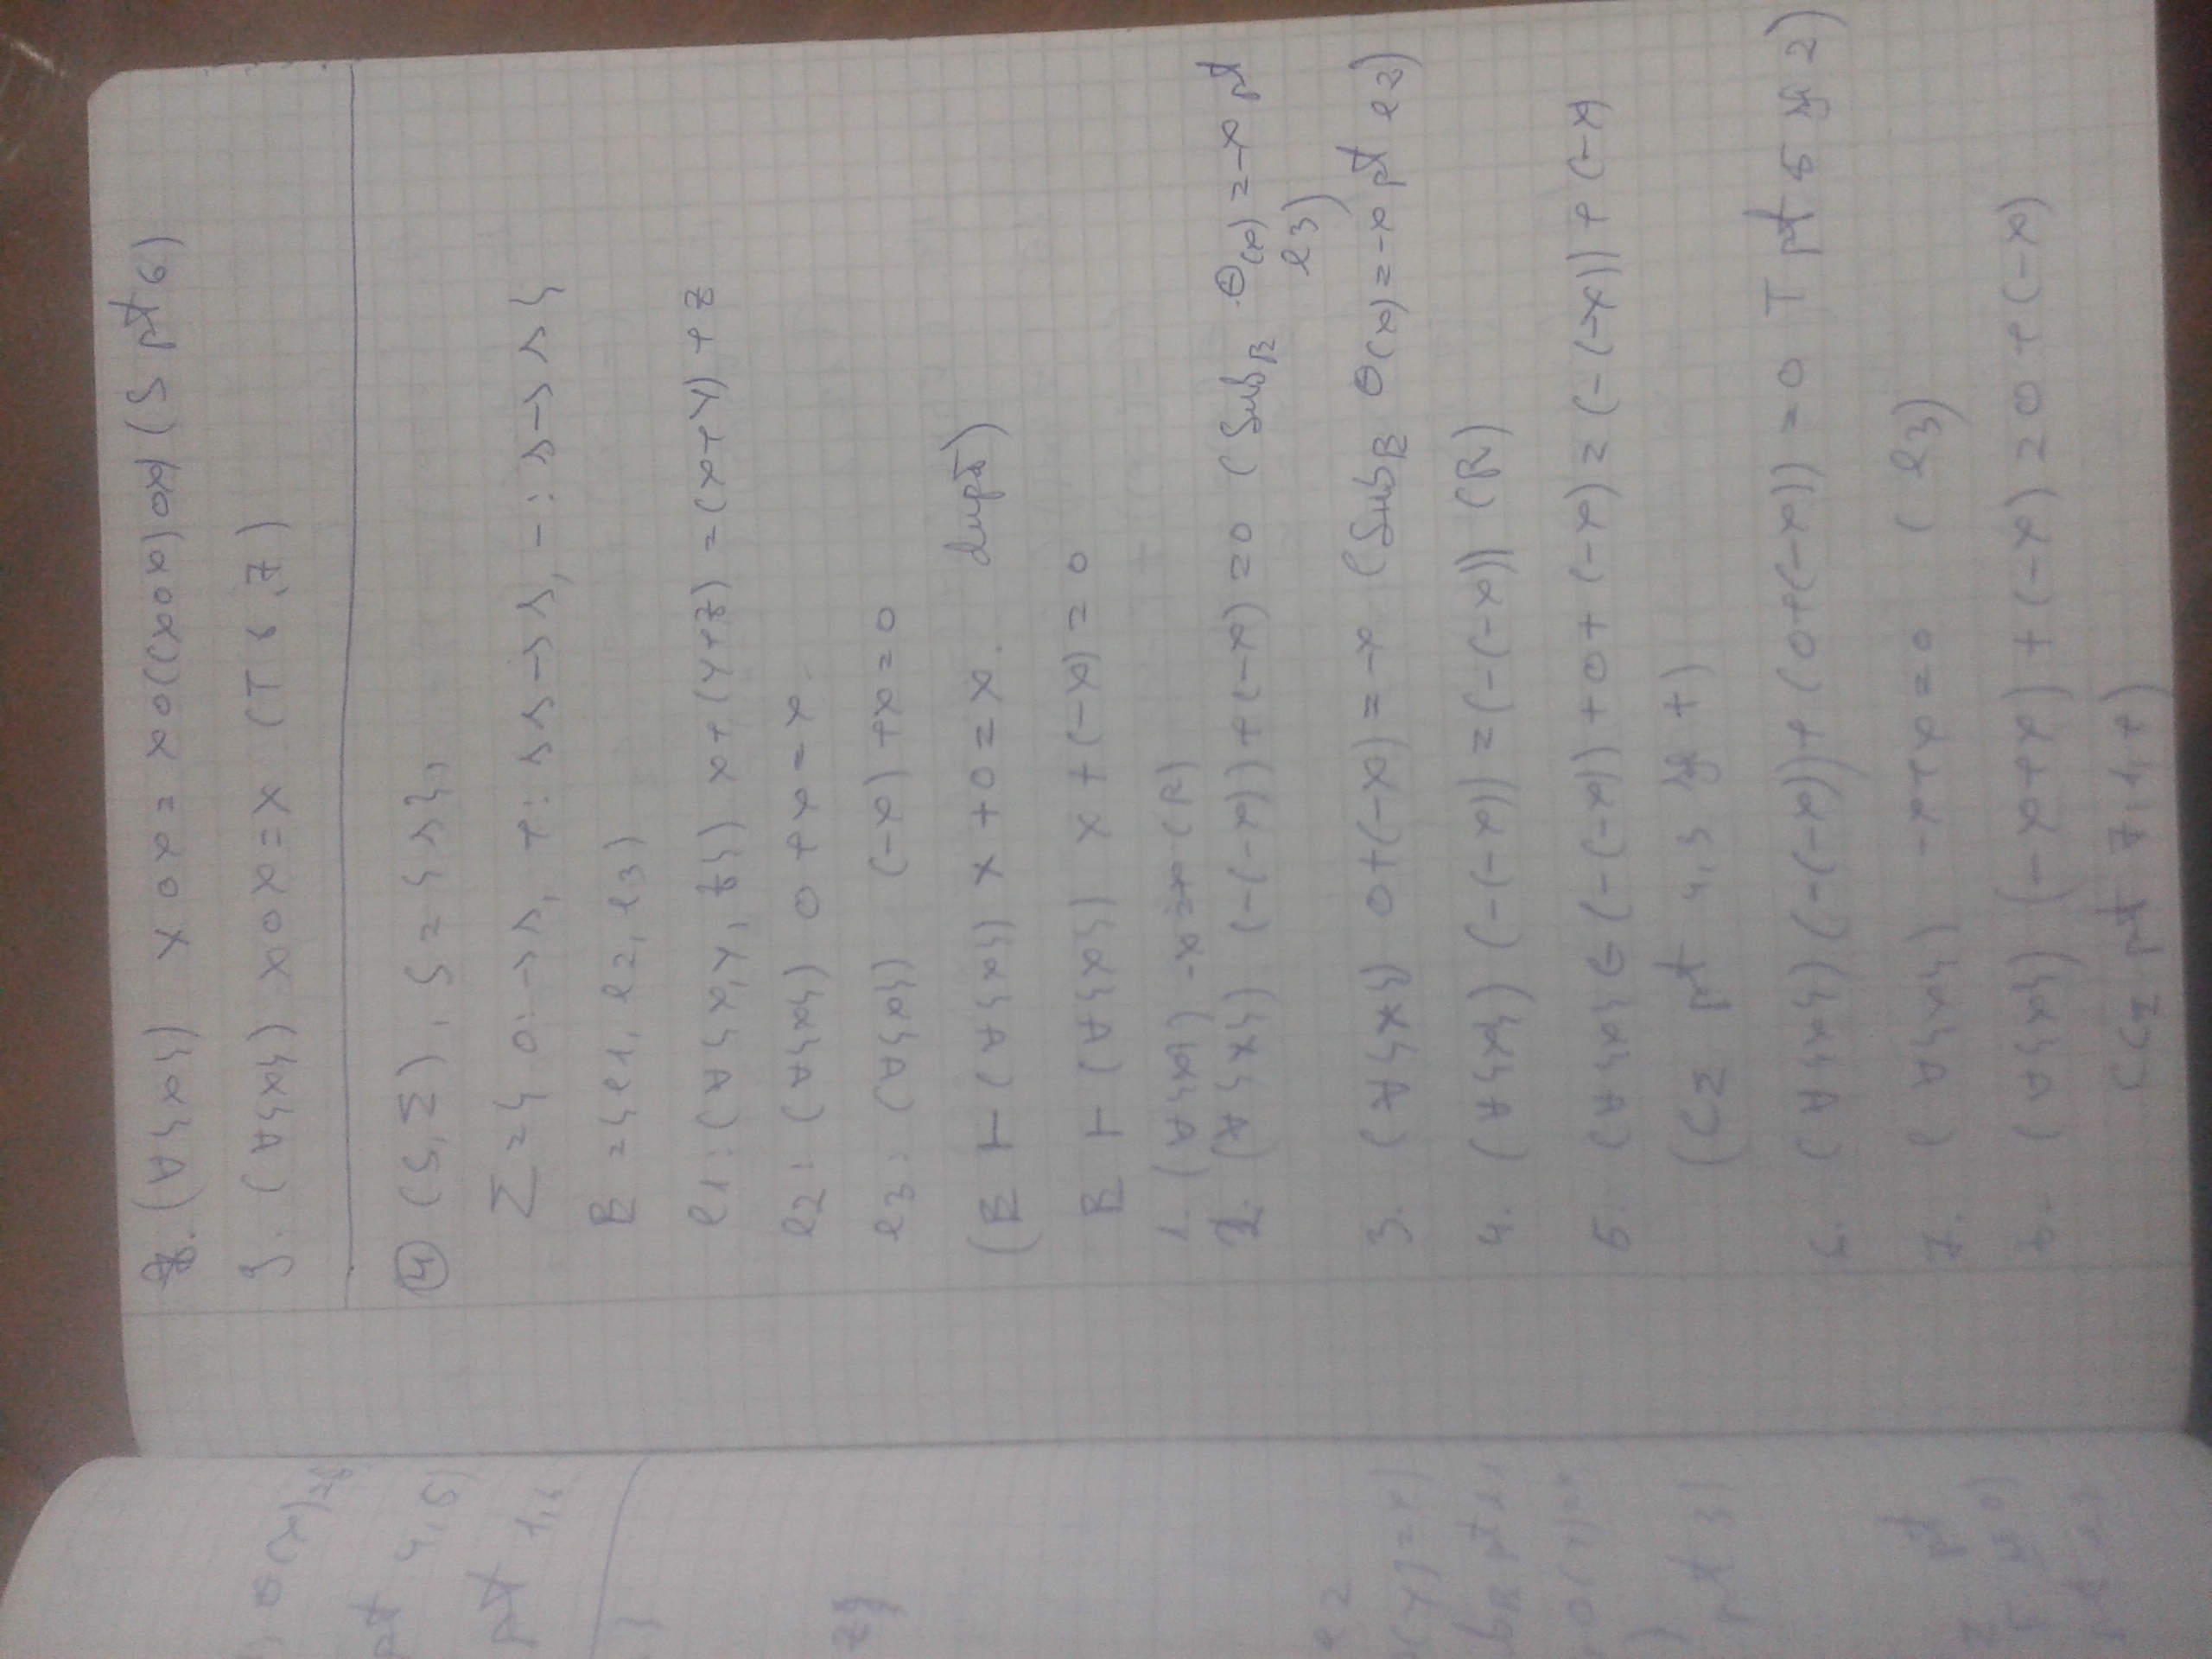 8. (∀{x}) x o x = x o((x o x) o x) (S pt 6)
9. (∀{x}) x o x = x (T 6,7)
④ (S, Σ), S = {s},
Σ = { 0: → s, +: ss → s, -: s → s }
E = {e1, e2, e3}
e1: (∀{x,y,z}) x+(y+z) = (x+y)+z
e2: (∀{x}) 0+x = x.
e3: (∀{x}) (-x)+x = 0
(E ⊢ (∀{x}) x+0 = x. după)
E ⊢ (∀{x}) x+(-x) = 0
1. (∀{x}) -x = -x (R)
2. (∀{x}) (-(-x))+(-x) = 0 (Sub_E θ(x) = -x pt
e3)
3. (∀{x}) 0+(-x) = -x (Sub_E θ(x) = -x pt e2)
4. (∀{x}) (-(-x)) = (-(-x)) (R)
5. (∀{x}) (-(-x))+0+(-x) = (-(-x))+(-x)
(CΣ pt 4,3 și +)
6. (∀{x}) (-(-x))+(0+(-x)) = 0 T pt 5 și 2)
7. (∀{x}) -x+x = 0 (e3)
8. (∀{x}) (-x+x)+(-x) = 0+(-x)
(CΣ pt 7,1,+)
pt 4,5)
pt 1,6
e2
pt 3)
pt